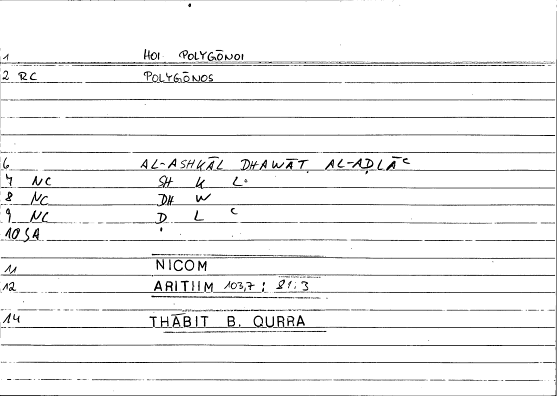 1 HOI POLYGŌNOI
2 RC POLYGŌNOS
6 AL-ASHKĀL DHAWĀT AL-AḌLĀᶜ
7 NC SH K L
8 NC DH W
9 NC Ḍ L ᶜ
10 SA
11 NICOM
12 ARITIIM 103,7 : 81.3
14 THĀBIT B. QURRA